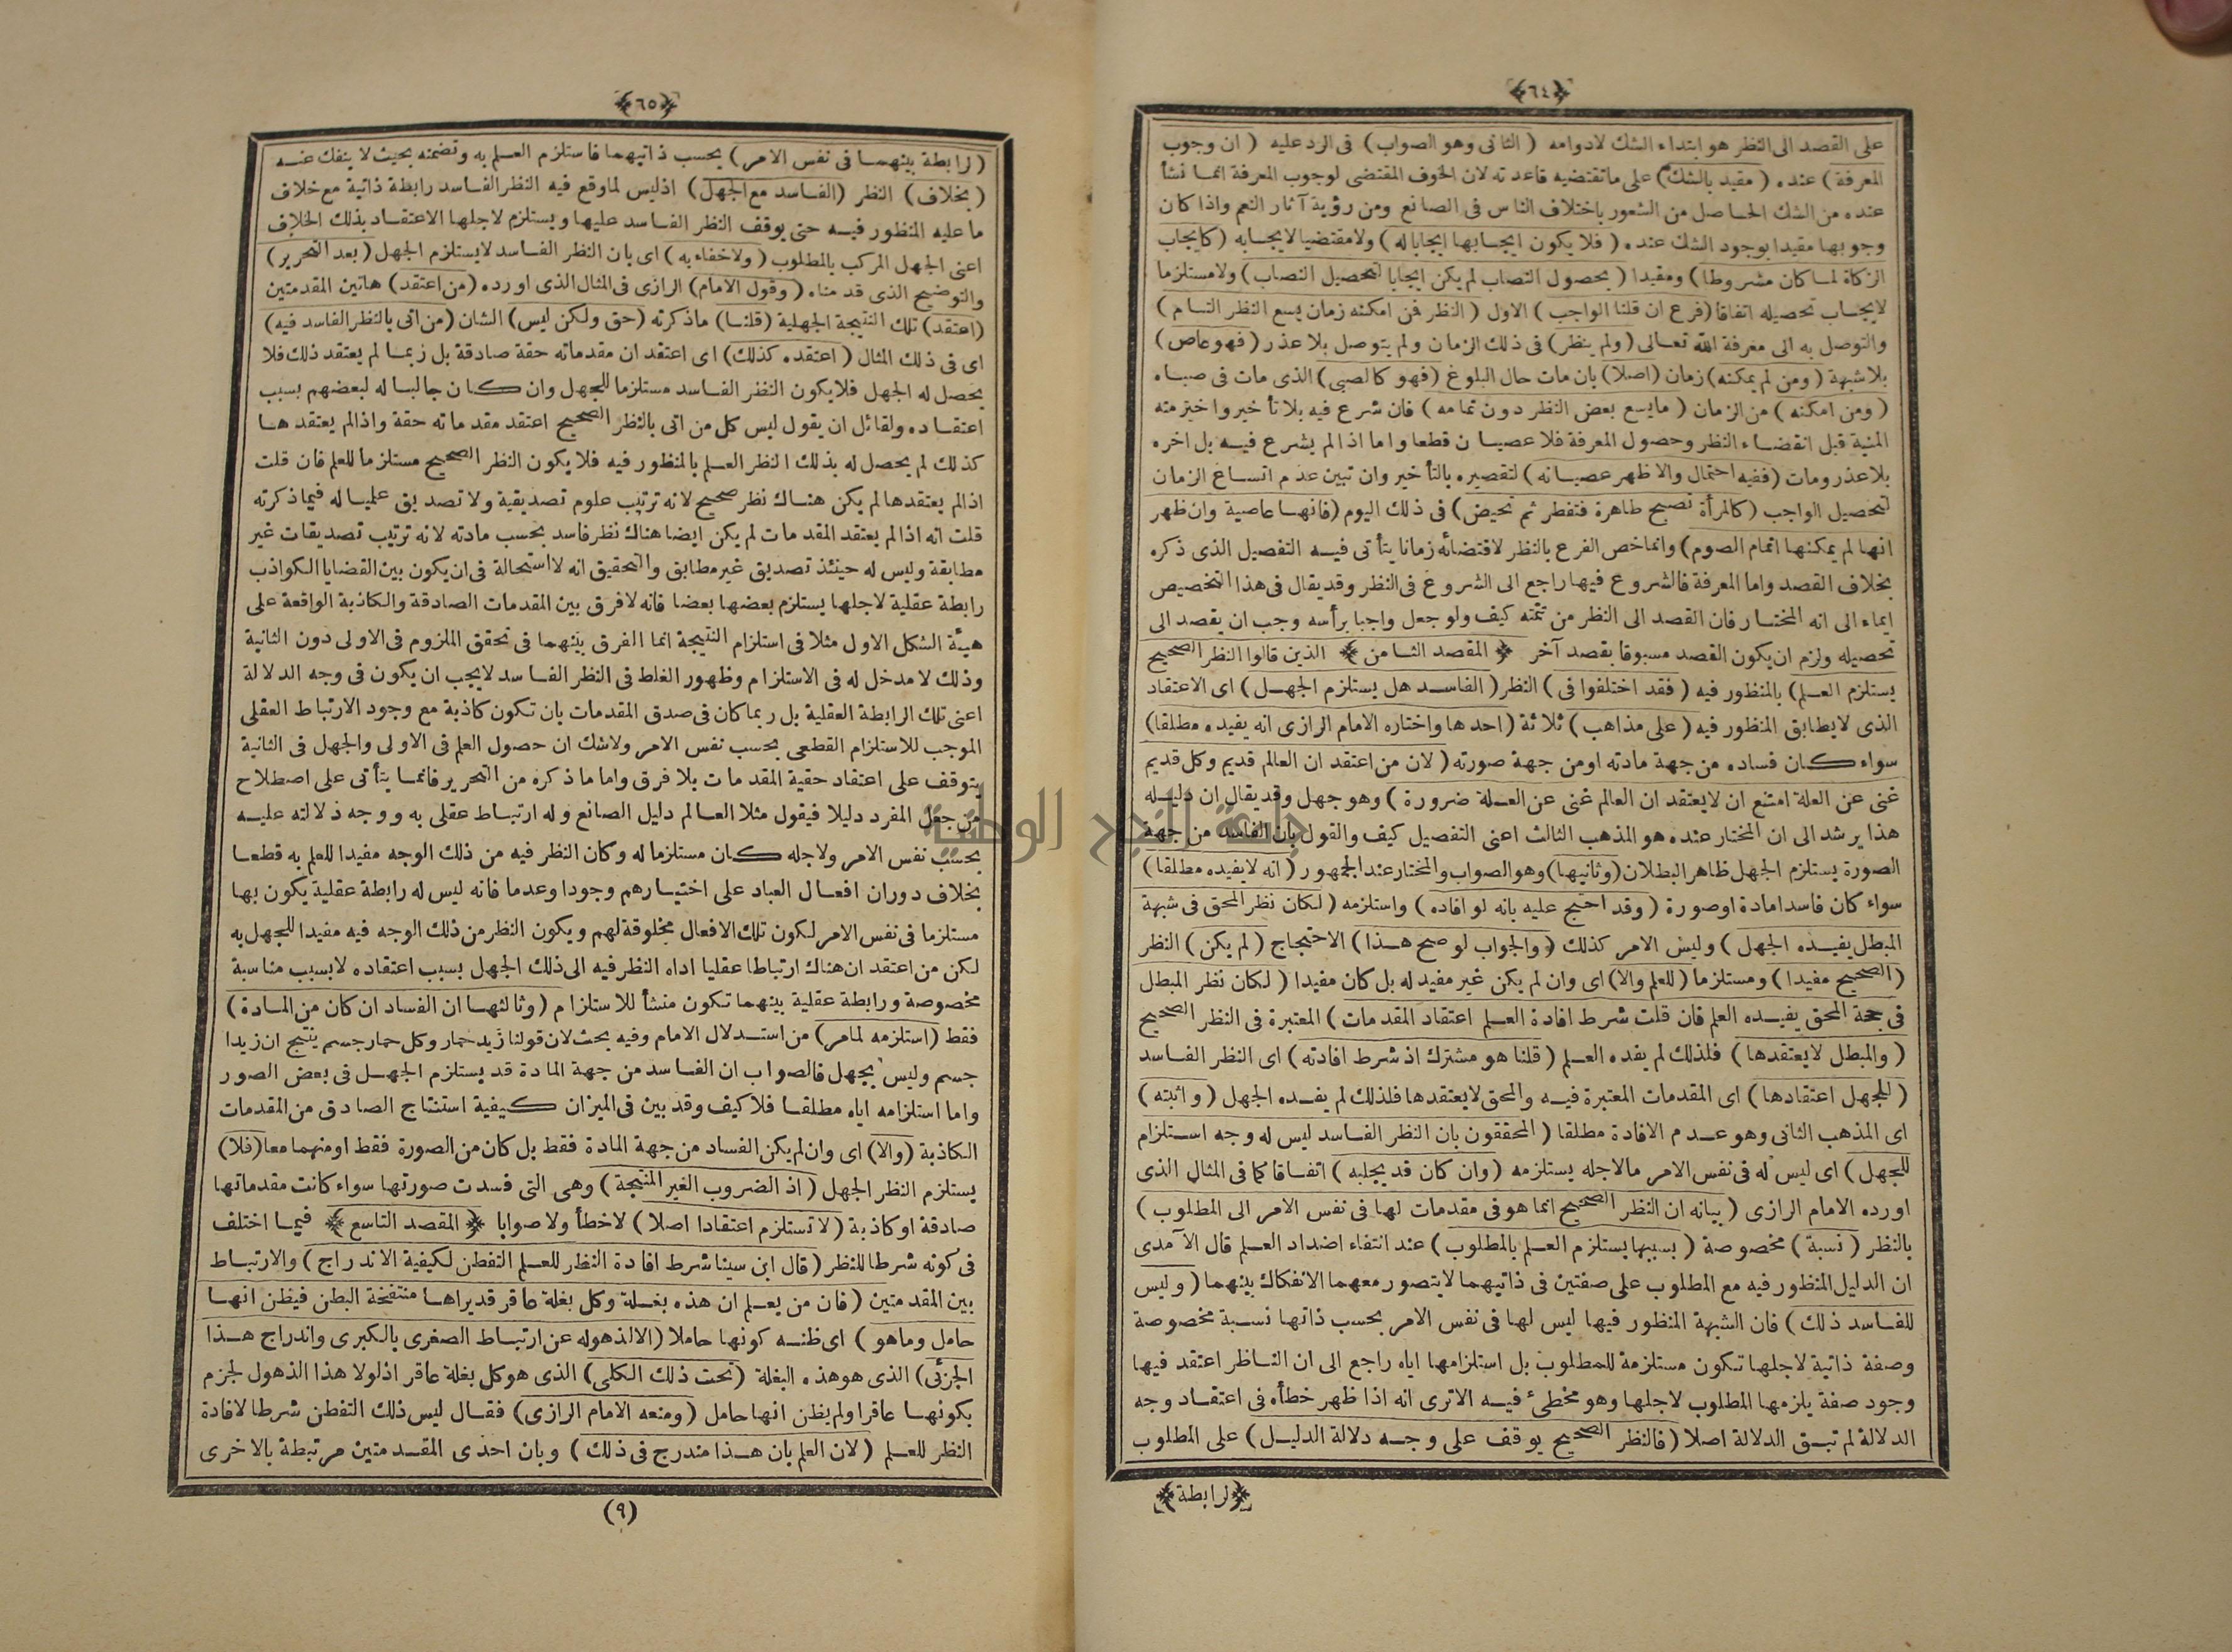 ﴿٦٤﴾
على القصد الى النظر هو ابتداء الشك لادوامه ( الثانى وهو الصواب ) فى الرد عليه ( ان وجوب
المعرفة ) عنده ( مقيد بالشك ) على ما تقتضيه قاعدته لان الخوف المقتضى لوجوب المعرفة انما نشأ
عنده من الشك الحاصل من الشعور باختلاف الناس فى الصانع ومن رؤية آثار النعم واذا كان
وجوبها مقيدا بوجود الشك عنده ( فلا يكون ايجابها ايجابا له ) ولا مقتضيا لايجابه ( كايجاب
الزكاة لما كان مشروطا ) ومقيدا ( بحصول النصاب لم يكن ايجابا لتحصيل النصاب ) ولا مستلزما
لايجاب تحصيله اتفاقا ( فرع ان قلنا الواجب ) الاول ( النظر فمن امكنه زمان يسع النظر التام )
والتوصل به الى معرفة الله تعالى ( ولم ينظر ) فى ذلك الزمان ولم يتوصل بلا عذر ( فهو عاص )
بلا شبهة ( ومن لم يمكنه ) زمان ( اصلا ) بان مات حال البلوغ ( فهو كالصبى ) الذى مات فى صباه
( ومن امكنه ) من الزمان ( ما يسع بعض النظر دون تمامه ) فان شرع فيه بلا تأخير واخترمته
المنية قبل انقضاء النظر وحصول المعرفة فلا عصيان قطعا واما اذا لم يشرع فيه بل اخره
بلا عذر ومات ( ففيه احتمال والاظهر عصيانه ) لتقصيره بالتأخير وان تبين عدم اتساع الزمان
لتحصيل الواجب ( كالمرأة تصبح طاهرة فتفطر ثم تحيض ) فى ذلك اليوم ( فانها عاصية وان ظهر
انها لم يمكنها اتمام الصوم ) وانما خص الفرع بالنظر لاقتضائه زمانا يتأتى فيه التفصيل الذى ذكره
بخلاف القصد واما المعرفة فالشروع فيها راجع الى الشروع فى النظر وقد يقال فى هذا التخصيص
ايماء الى انه المختار فان القصد الى النظر من تتمته كيف ولو جعل واجبا برأسه وجب ان يقصد الى
تحصيله ولزم ان يكون القصد مسبوقا بقصد آخر ﴿ المقصد الثامن ﴾ الذين قالوا النظر الصحيح
يستلزم العلم ) بالمنظور فيه ( فقد اختلفوا فى ) النظر ( الفاسد هل يستلزم الجهل ) اى الاعتقاد
الذى لا يطابق المنظور فيه ( على مذاهب ) ثلاثة ( احدها واختاره الامام الرازى انه يفيده مطلقا )
سواء كان فساده من جهة مادته او من جهة صورته ( لان من اعتقد ان العالم قديم وكل قديم
غنى عن العلة امتنع ان لا يعتقد ان العالم غنى عن العلة ضرورة ) وهو جهل وقد يقال ان دليله
هذا يرشد الى ان المختار عنده هو المذهب الثالث اعنى التفصيل كيف والقول بان الفاسد من جهة
الصورة يستلزم الجهل ظاهر البطلان ( وثانيها ) وهو الصواب والمختار عند الجمهور ( انه لا يفيده مطلقا )
سواء كان فاسدا مادة او صورة ( وقد احتج عليه بانه لو افاده ) واستلزمه ( لكان نظر المحق فى شبهة
المبطل يفيده الجهل ) وليس الامر كذلك ( والجواب لو صح هذا ) الاحتجاج ( لم يكن ) النظر
( الصحيح مفيدا ) ومستلزما ( للعلم والا ) اى وان لم يكن غير مفيد له بل كان مفيدا ( لكان نظر المبطل
فى حجة المحق يفيده العلم فان قلت شرط افادة العلم اعتقاد المقدمات ) المعتبرة فى النظر الصحيح
( والمبطل لا يعتقدها ) فلذلك لم يفده العلم ( قلنا هو مشترك اذ شرط افادته ) اى النظر الفاسد
( للجهل اعتقادها ) اى المقدمات المعتبرة فيه والمحق لا يعتقدها فلذلك لم يفده الجهل ( واثبته )
اى المذهب الثانى وهو عدم الافادة مطلقا ( المحققون بان النظر الفاسد ليس له وجه استلزام
للجهل ) اى ليس له فى نفس الامر ما لاجله يستلزمه ( وان كان قد يجلبه ) اتفاقا كما فى المثال الذى
اورده الامام الرازى ( بيانه ان النظر الصحيح انما هو فى مقدمات لها فى نفس الامر الى المطلوب )
بالنظر ( نسبة ) مخصوصة ( بسببها يستلزم العلم بالمطلوب ) عند انتفاء اضداد العلم قال الآمدى
ان الدليل المنظور فيه مع المطلوب على صفتين فى ذاتيهما لا يتصور معهما الانفكاك بينهما ( وليس
للفاسد ذلك ) فان الشبهة المنظور فيها ليس لها فى نفس الامر بحسب ذاتها نسبة مخصوصة
وصفة ذاتية لاجلها تكون مستلزمة للمطلوب بل استلزامها اياه راجع الى ان الناظر اعتقد فيها
وجود صفة يلزمها المطلوب لاجلها وهو مخطئ فيه الا ترى انه اذا ظهر خطأه فى اعتقاد وجه
الدلالة لم تبق الدلالة اصلا ( فالنظر الصحيح يوقف على وجه دلالة الدليل ) على المطلوب
﴿ لرابطة ﴾
﴿٦٥﴾
( لرابطة بينهما فى نفس الامر ) بحسب ذاتيهما فاستلزم العلم به وتضمنه بحيث لا ينفك عنه
( بخلاف ) النظر ( الفاسد مع الجهل ) اذ ليس لما وقع فيه النظر الفاسد رابطة ذاتية مع خلاف
ما عليه المنظور فيه حتى يوقف النظر الفاسد عليها ويستلزم لاجلها الاعتقاد بذلك الخلاف
اعنى الجهل المركب بالمطلوب ( ولا خفاء به ) اى بان النظر الفاسد لا يستلزم الجهل ( بعد التحرير )
والتوضيح الذى قدمناه ( وقول الامام ) الرازى فى المثال الذى اورده ( من اعتقد ) هاتين المقدمتين
( اعتقد ) تلك النتيجة الجهلية ( قلنا ) ما ذكرته ( حق ولكن ليس ) الشان ( من اتى بالنظر الفاسد فيه )
اى فى ذلك المثال ( اعتقده كذلك ) اى اعتقد ان مقدماته حقة صادقة بل ربما لم يعتقد ذلك فلا
يحصل له الجهل فلا يكون النظر الفاسد مستلزما للجهل وان كان جالبا له لبعضهم بسبب
اعتقاده ولقائل ان يقول ليس كل من اتى بالنظر الصحيح اعتقد مقدماته حقة واذا لم يعتقدها
كذلك لم يحصل له بذلك النظر العلم بالمنظور فيه فلا يكون النظر الصحيح مستلزما للعلم فان قلت
اذا لم يعتقدها لم يكن هناك نظر صحيح لانه ترتيب علوم تصديقية ولا تصديق علميا له فيما ذكرته
قلت انه اذا لم يعتقد المقدمات لم يكن ايضا هناك نظر فاسد بحسب مادته لانه ترتيب تصديقات غير
مطابقة وليس له حينئذ تصديق غير مطابق والتحقيق انه لا استحالة فى ان يكون بين القضايا الكواذب
رابطة عقلية لاجلها يستلزم بعضها بعضا فانه لا فرق بين المقدمات الصادقة والكاذبة الواقعة على
هيئة الشكل الاول مثلا فى استلزام النتيجة انما الفرق بينهما فى تحقق الملزوم فى الاولى دون الثانية
وذلك لا مدخل له فى الاستلزام وظهور الغلط فى النظر الفاسد لا يجب ان يكون فى وجه الدلالة
اعنى تلك الرابطة العقلية بل ربما كان فى صدق المقدمات بان تكون كاذبة مع وجود الارتباط العقلى
الموجب للاستلزام القطعى بحسب نفس الامر ولا شك ان حصول العلم فى الاولى والجهل فى الثانية
يتوقف على اعتقاد حقية المقدمات بلا فرق واما ما ذكره من التحرير فانما يتأتى على اصطلاح
من جعل المفرد دليلا فيقول مثلا العالم دليل الصانع وله ارتباط عقلى به ووجه دلالته عليه
بحسب نفس الامر ولاجله كان مستلزما له وكان النظر فيه من ذلك الوجه مفيدا للعلم به قطعا
بخلاف دوران افعال العباد على اختيارهم وجودا وعدما فانه ليس له رابطة عقلية يكون بها
مستلزما فى نفس الامر لكون تلك الافعال مخلوقة لهم ويكون النظر من ذلك الوجه فيه مفيدا للجهل به
لكن من اعتقد ان هناك ارتباطا عقليا اداه النظر فيه الى ذلك الجهل بسبب اعتقاده لا بسبب مناسبة
مخصوصة ورابطة عقلية بينهما تكون منشأ للاستلزام ( وثالثها ان الفساد ان كان من المادة )
فقط ( استلزمه لما مر ) من استدلال الامام وفيه بحث لان قولنا زيد حمار وكل حمار جسم ينتج ان زيدا
جسم وليس بجهل فالصواب ان الفاسد من جهة المادة قد يستلزم الجهل فى بعض الصور
واما استلزامه اياه مطلقا فلا كيف وقد بين فى الميزان كيفية استنتاج الصادق من المقدمات
الكاذبة ( والا ) اى وان لم يكن الفساد من جهة المادة فقط بل كان من الصورة فقط او منهما معا ( فلا )
يستلزم النظر الجهل ( اذ الضروب الغير المنتجة ) وهى التى فسدت صورتها سواء كانت مقدماتها
صادقة او كاذبة ( لا تستلزم اعتقادا اصلا ) لا خطأ ولا صوابا ﴿ المقصد التاسع ﴾ فيما اختلف
فى كونه شرطا للنظر ( قال ابن سينا شرط افادة النظر للعلم التفطن لكيفية الاندراج ) والارتباط
بين المقدمتين ( فان من يعلم ان هذه بغلة وكل بغلة عاقر قد يراها منتفخة البطن فيظن انها
حامل وما هو ) اى ظنه كونها حاملا ( الا لذهوله عن ارتباط الصغرى بالكبرى واندراج هذا
الجزئى ) الذى هو هذه البغلة ( تحت ذلك الكلى ) الذى هو كل بغلة عاقر اذ لولا هذا الذهول لجزم
بكونها عاقرا ولم يظن انها حامل ( ومنعه الامام الرازى ) فقال ليس ذلك التفطن شرطا لافادة
النظر للعلم ( لان العلم بان هذا مندرج فى ذلك ) وبان احدى المقدمتين مرتبطة بالاخرى
(٩)
جامعة النجاح الوطنية